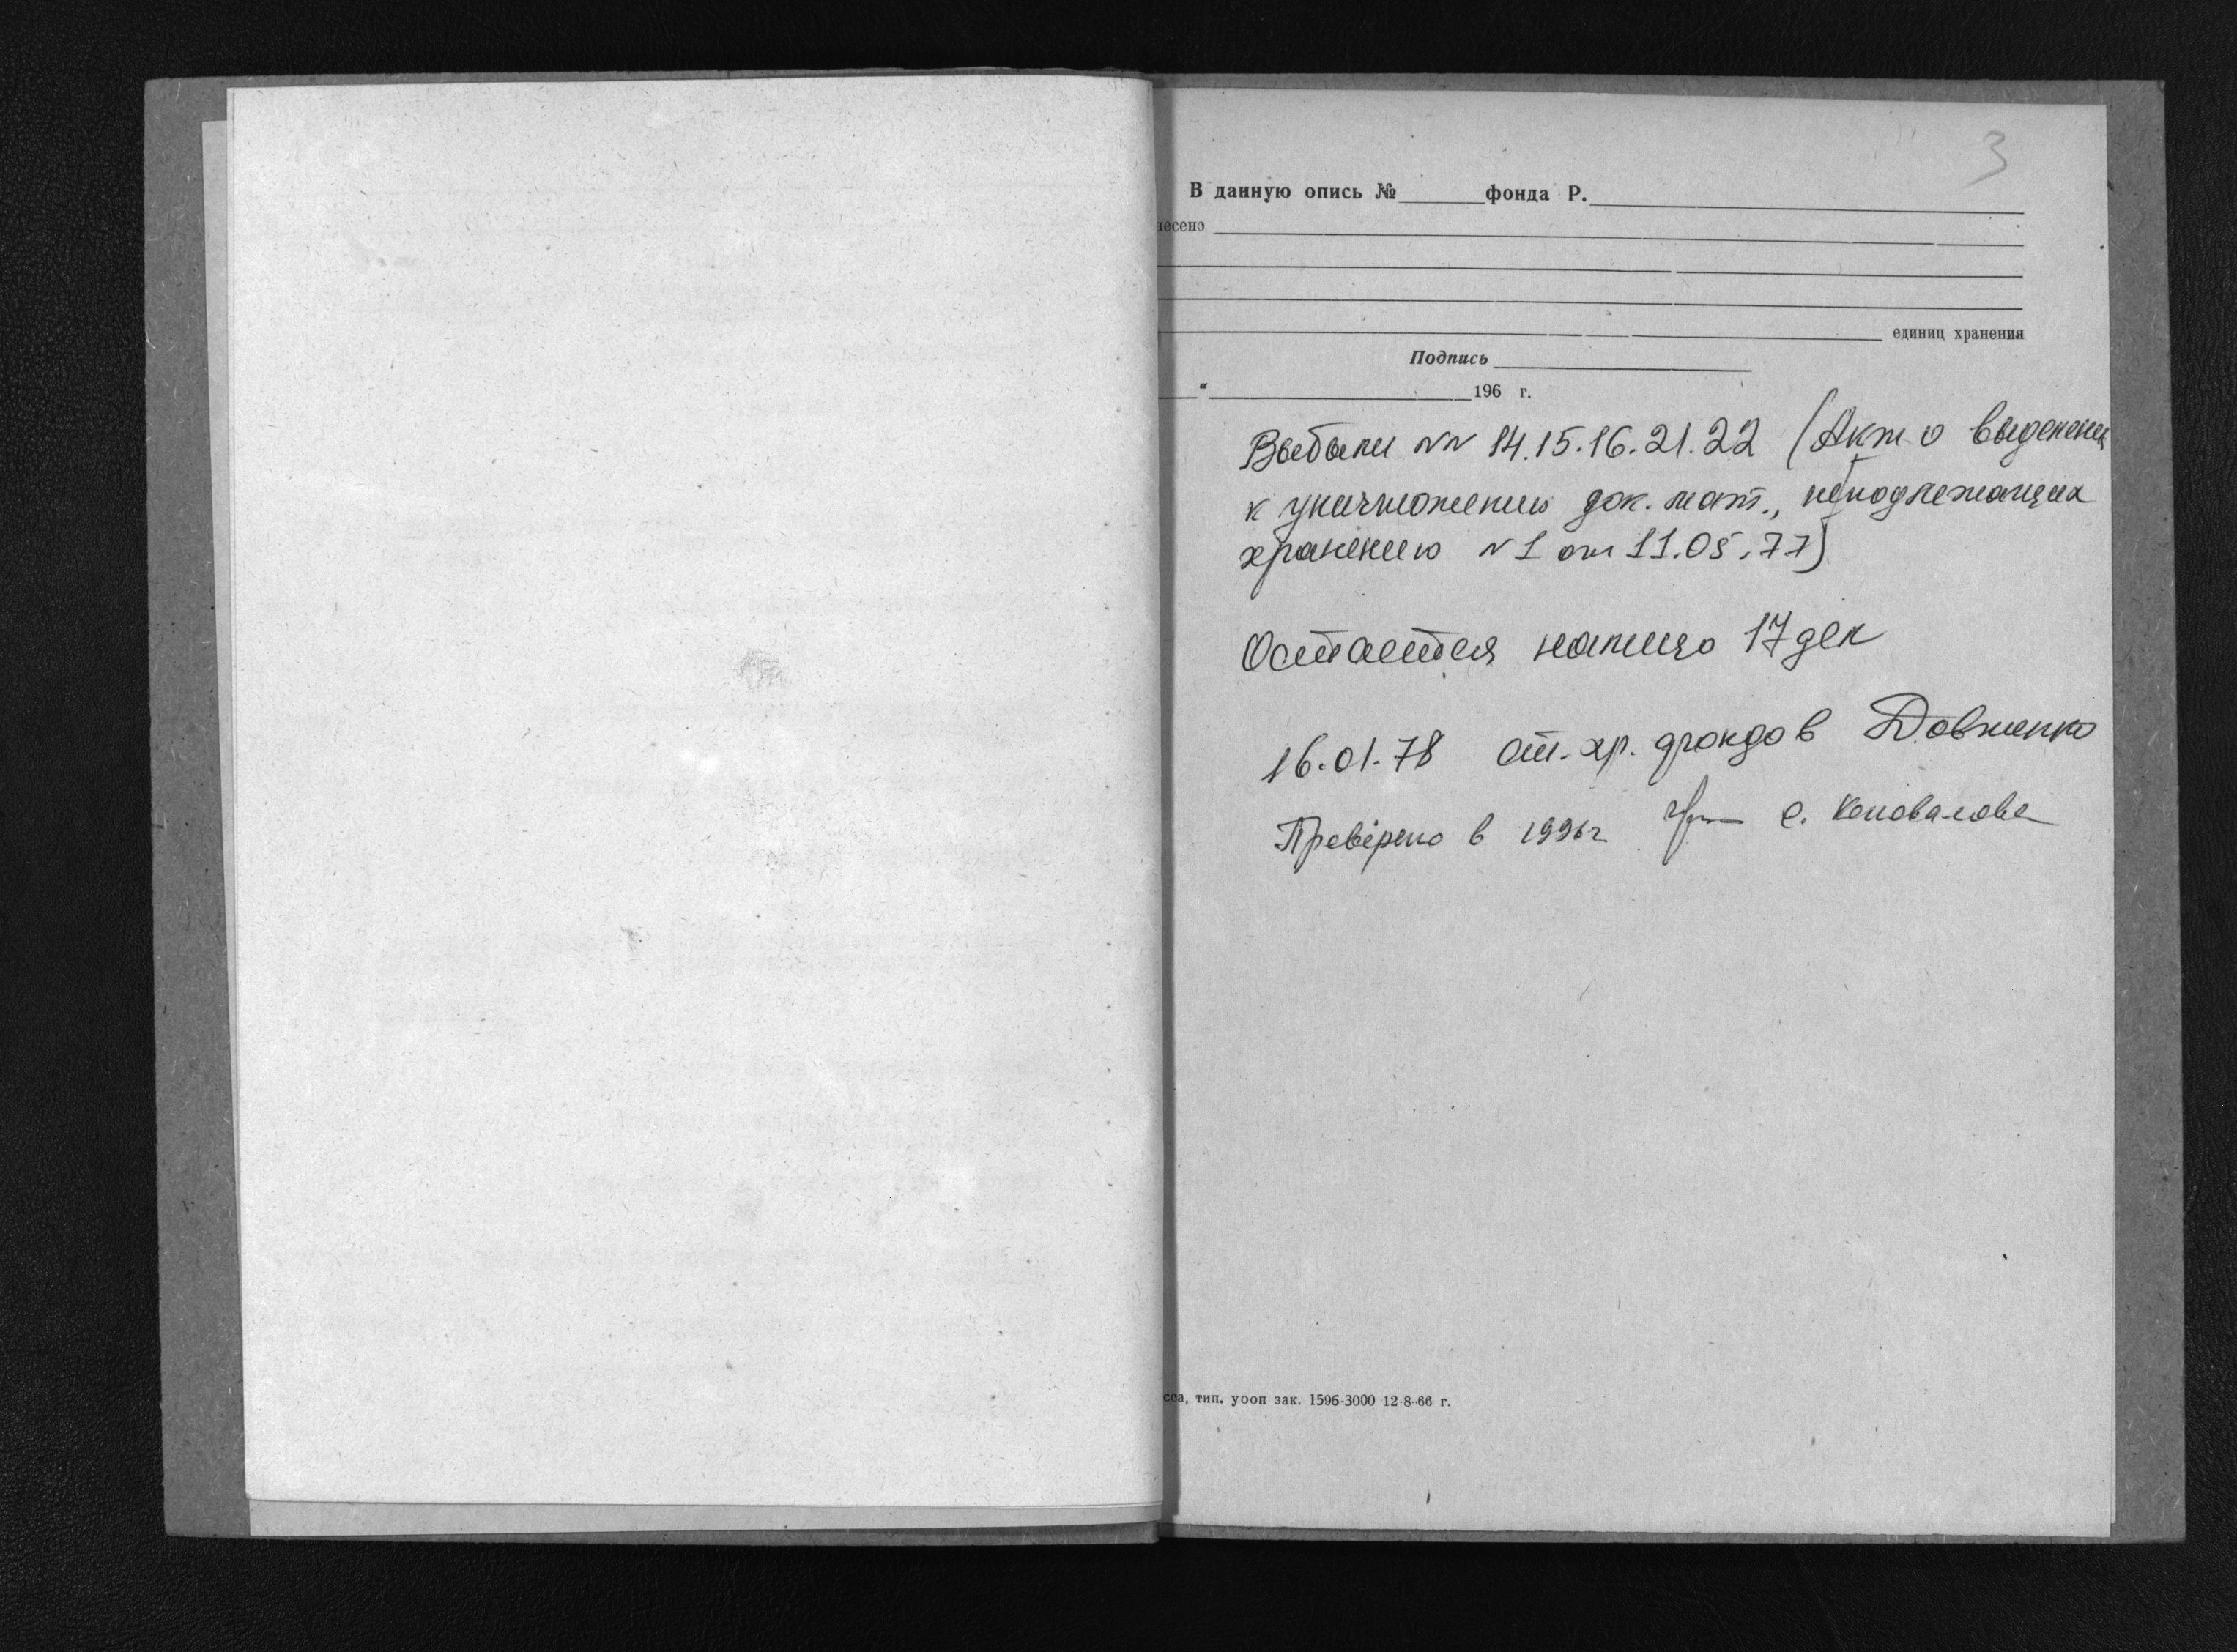 3
В данную опись № фонда Р.
несено
единиц хранения
Подпись
“ 196 г.
Выбыли NN 14.15.16.21.22 (Акт о выделении
к уничтожению док. мат., неподлежащих
хранению N 1 от 11.05.77)
Остается налицо 17 дел
16.01.78 ст. хр. фондов Довженко
Превірено в 1996г С. Коновалова
сса, тип. уооп зак. 1596-3000 12-8-66 г.